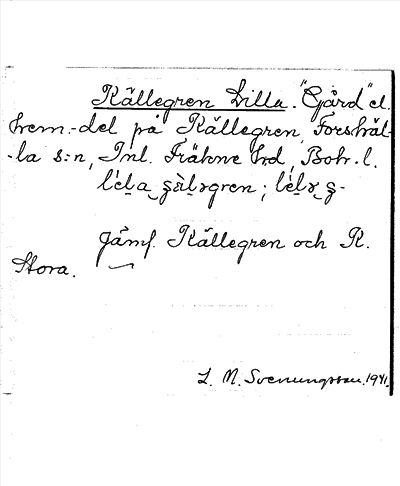 Källegren Lilla. "Gård" el.
hem.-del på Källegren, Forshäl-
-la s:n, Inl. Fräkne hd, Boh. l.
Jämf. Källegren och K.
Stora.
L. M. Svenungsson. 1941.